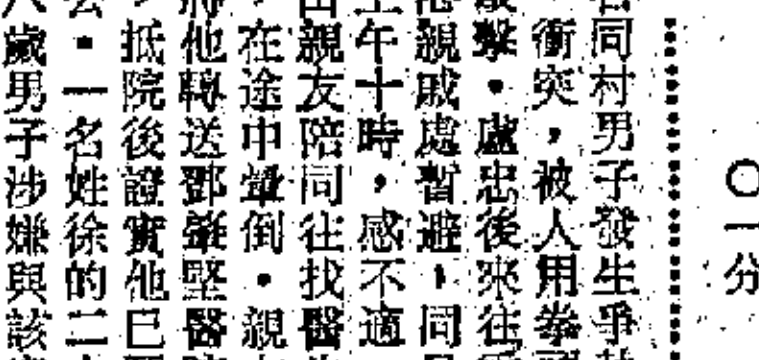 〇一分
同村男子發生爭
衝突，被人用拳
擊．盧忠後來往
他親戚處暫避，同
上午十時，感不適
由親友陪同往找醫
在途中暈倒．親
將他轉送鄧肇堅醫
抵院後證實他已
．一名姓徐的二
歲男子涉嫌與該